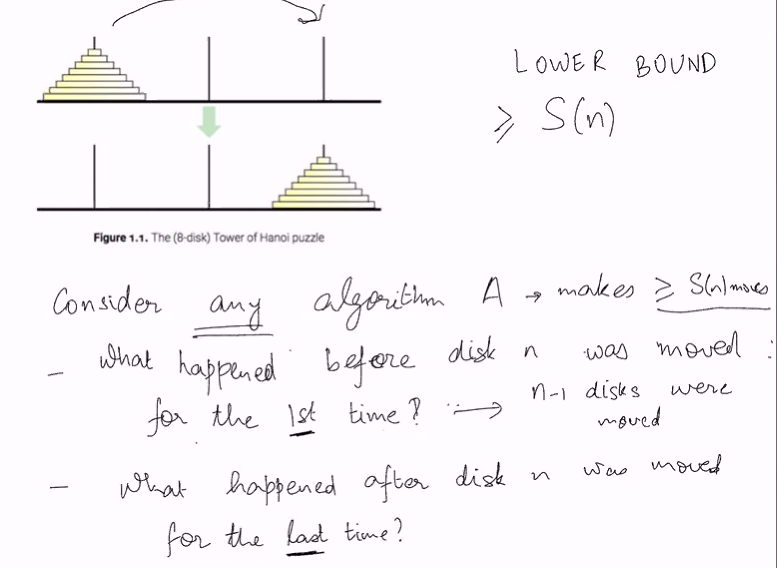 LOWER BOUND
≥ S(n)
Figure 1.1. The (8-disk) Tower of Hanoi puzzle
Consider any algorithm A → makes ≥ S(n) moves
- What happened before disk n was moved :
for the 1st time? → n-1 disks were
moved
- What happened after disk n was moved
for the last time?